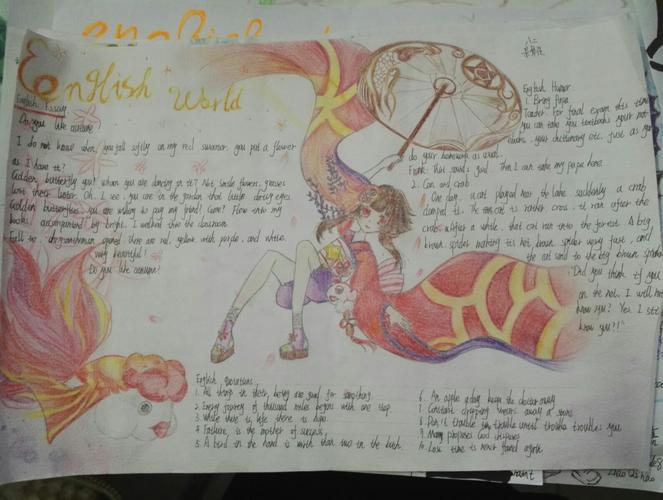 English World
English Essay
Do you like autumn?
I do not know when, you fall softly on my red summer. you put a flower
as I have it?
Golden butterfly you! whom you are dancing in it? Not smile flowers, grasses
lost their luster. Oh, I see, you are in the garden that little daring eyes.
Golden butterflies you are willing to my friend? Come! Flow into my
books, accompanied by bright. I walked into the classroom.
Fall to chrysanthemum opened there are red, yellow with purple, and white.
very beautiful!
Do you like autumn?
English Humor
1. Bring Papa
Teacher: for final exam this time
you can take you textbooks your not
your dictionary etc. just as you
do your homework as usual.
Frank: That sounds good. Then I can take my papa here.
2. Cat and crab
One day, a cat played near the lake. suddenly a crab
the cat is rather cross. it ran after the
crab. After a while. that cat ran into the forest. A big
brown spider making its net brown spider very fast, and
the cat said to the big brown spider
"Did you think if you
on the net. I will not
know you? Yes, I still
know you?!"
English quotations
1. All things in their being are good for something
2. Every journey of thousand miles begins with one step
3. While there is life there is hope.
4. Failure is the mother of success.
5. A bird in the hand is worth than two in the bush.
6. An apple a day keeps the doctor away
7. Constant dropping wears away a stone
8. Don't trouble trouble until trouble troubles you
9. Many
10. Lose time is never found again.